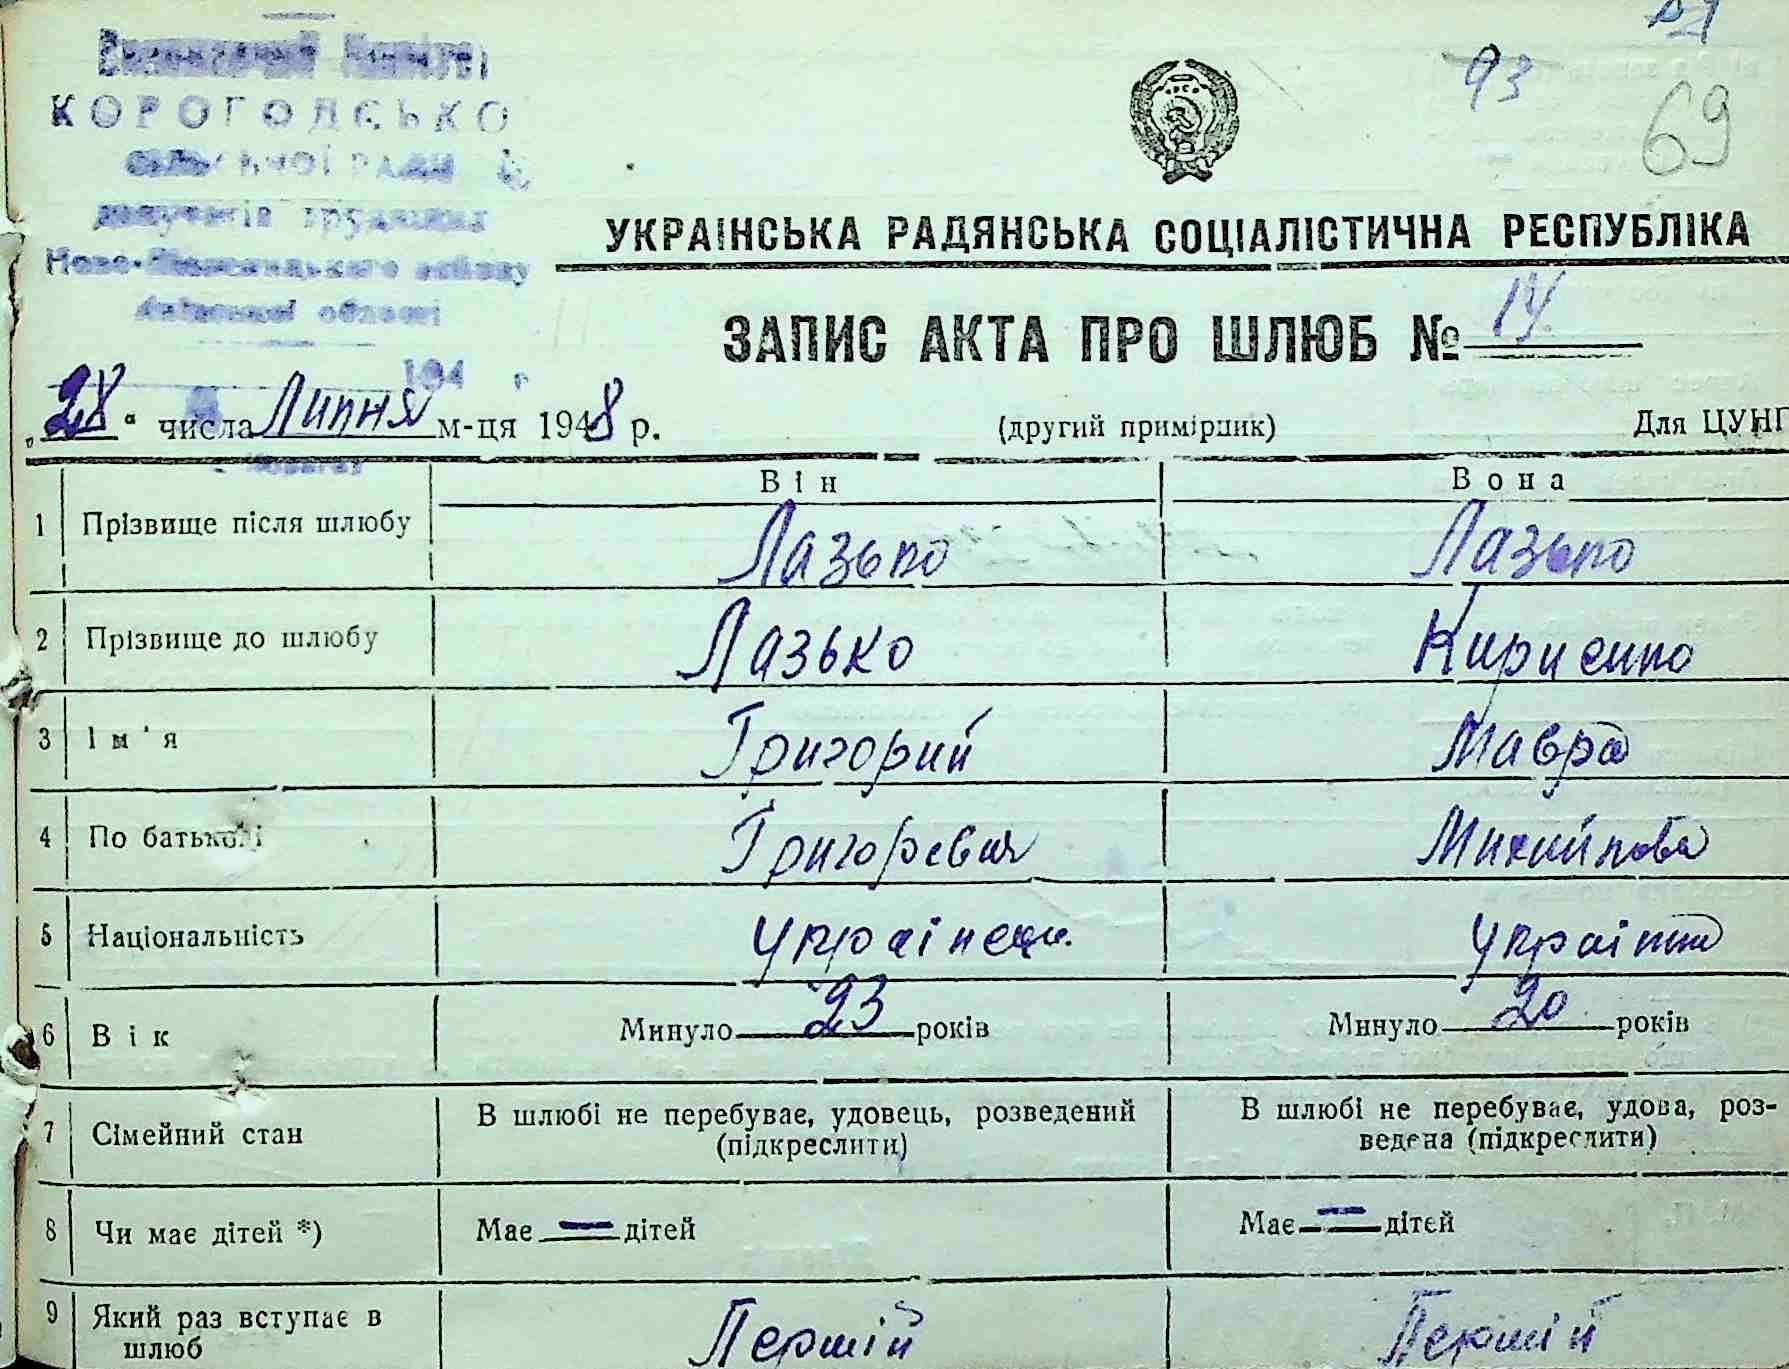 93
69
Виконавчий Комітет
КОРОГОДСЬКО
СІЛЬСЬКОЇ РАДИ
депутатів трудящих
Ново-Шепелицького району
Київської області
194 р
УКРАІНСЬКА РАДЯНСЬКА СОЦІАЛІСТИЧНА РЕСПУБЛІКА
ЗАПИС АКТА ПРО ШЛЮБ № 14
„28“ числа Липня м-ця 1948 р.
(другий примірник)
Для ЦУНГ
Він Вона
1 Прізвище після шлюбу Лазько Лазько
2 Прізвище до шлюбу Лазько Кириенко
3 Ім'я Григорий Мавра
4 По батькові Григоревич
5 Національність Украінец
6 Вік Минуло 23 років Минуло 20 років
7 Сімейний стан В шлюбі не перебуває, удовець, розведений (підкреслити) В шлюбі не перебуває, удова, роз-
ведена (підкреслити)
8 Чи має дітей *) Має — дітей Має — дітей
9 Який раз вступає в Першій Першій
шлюб